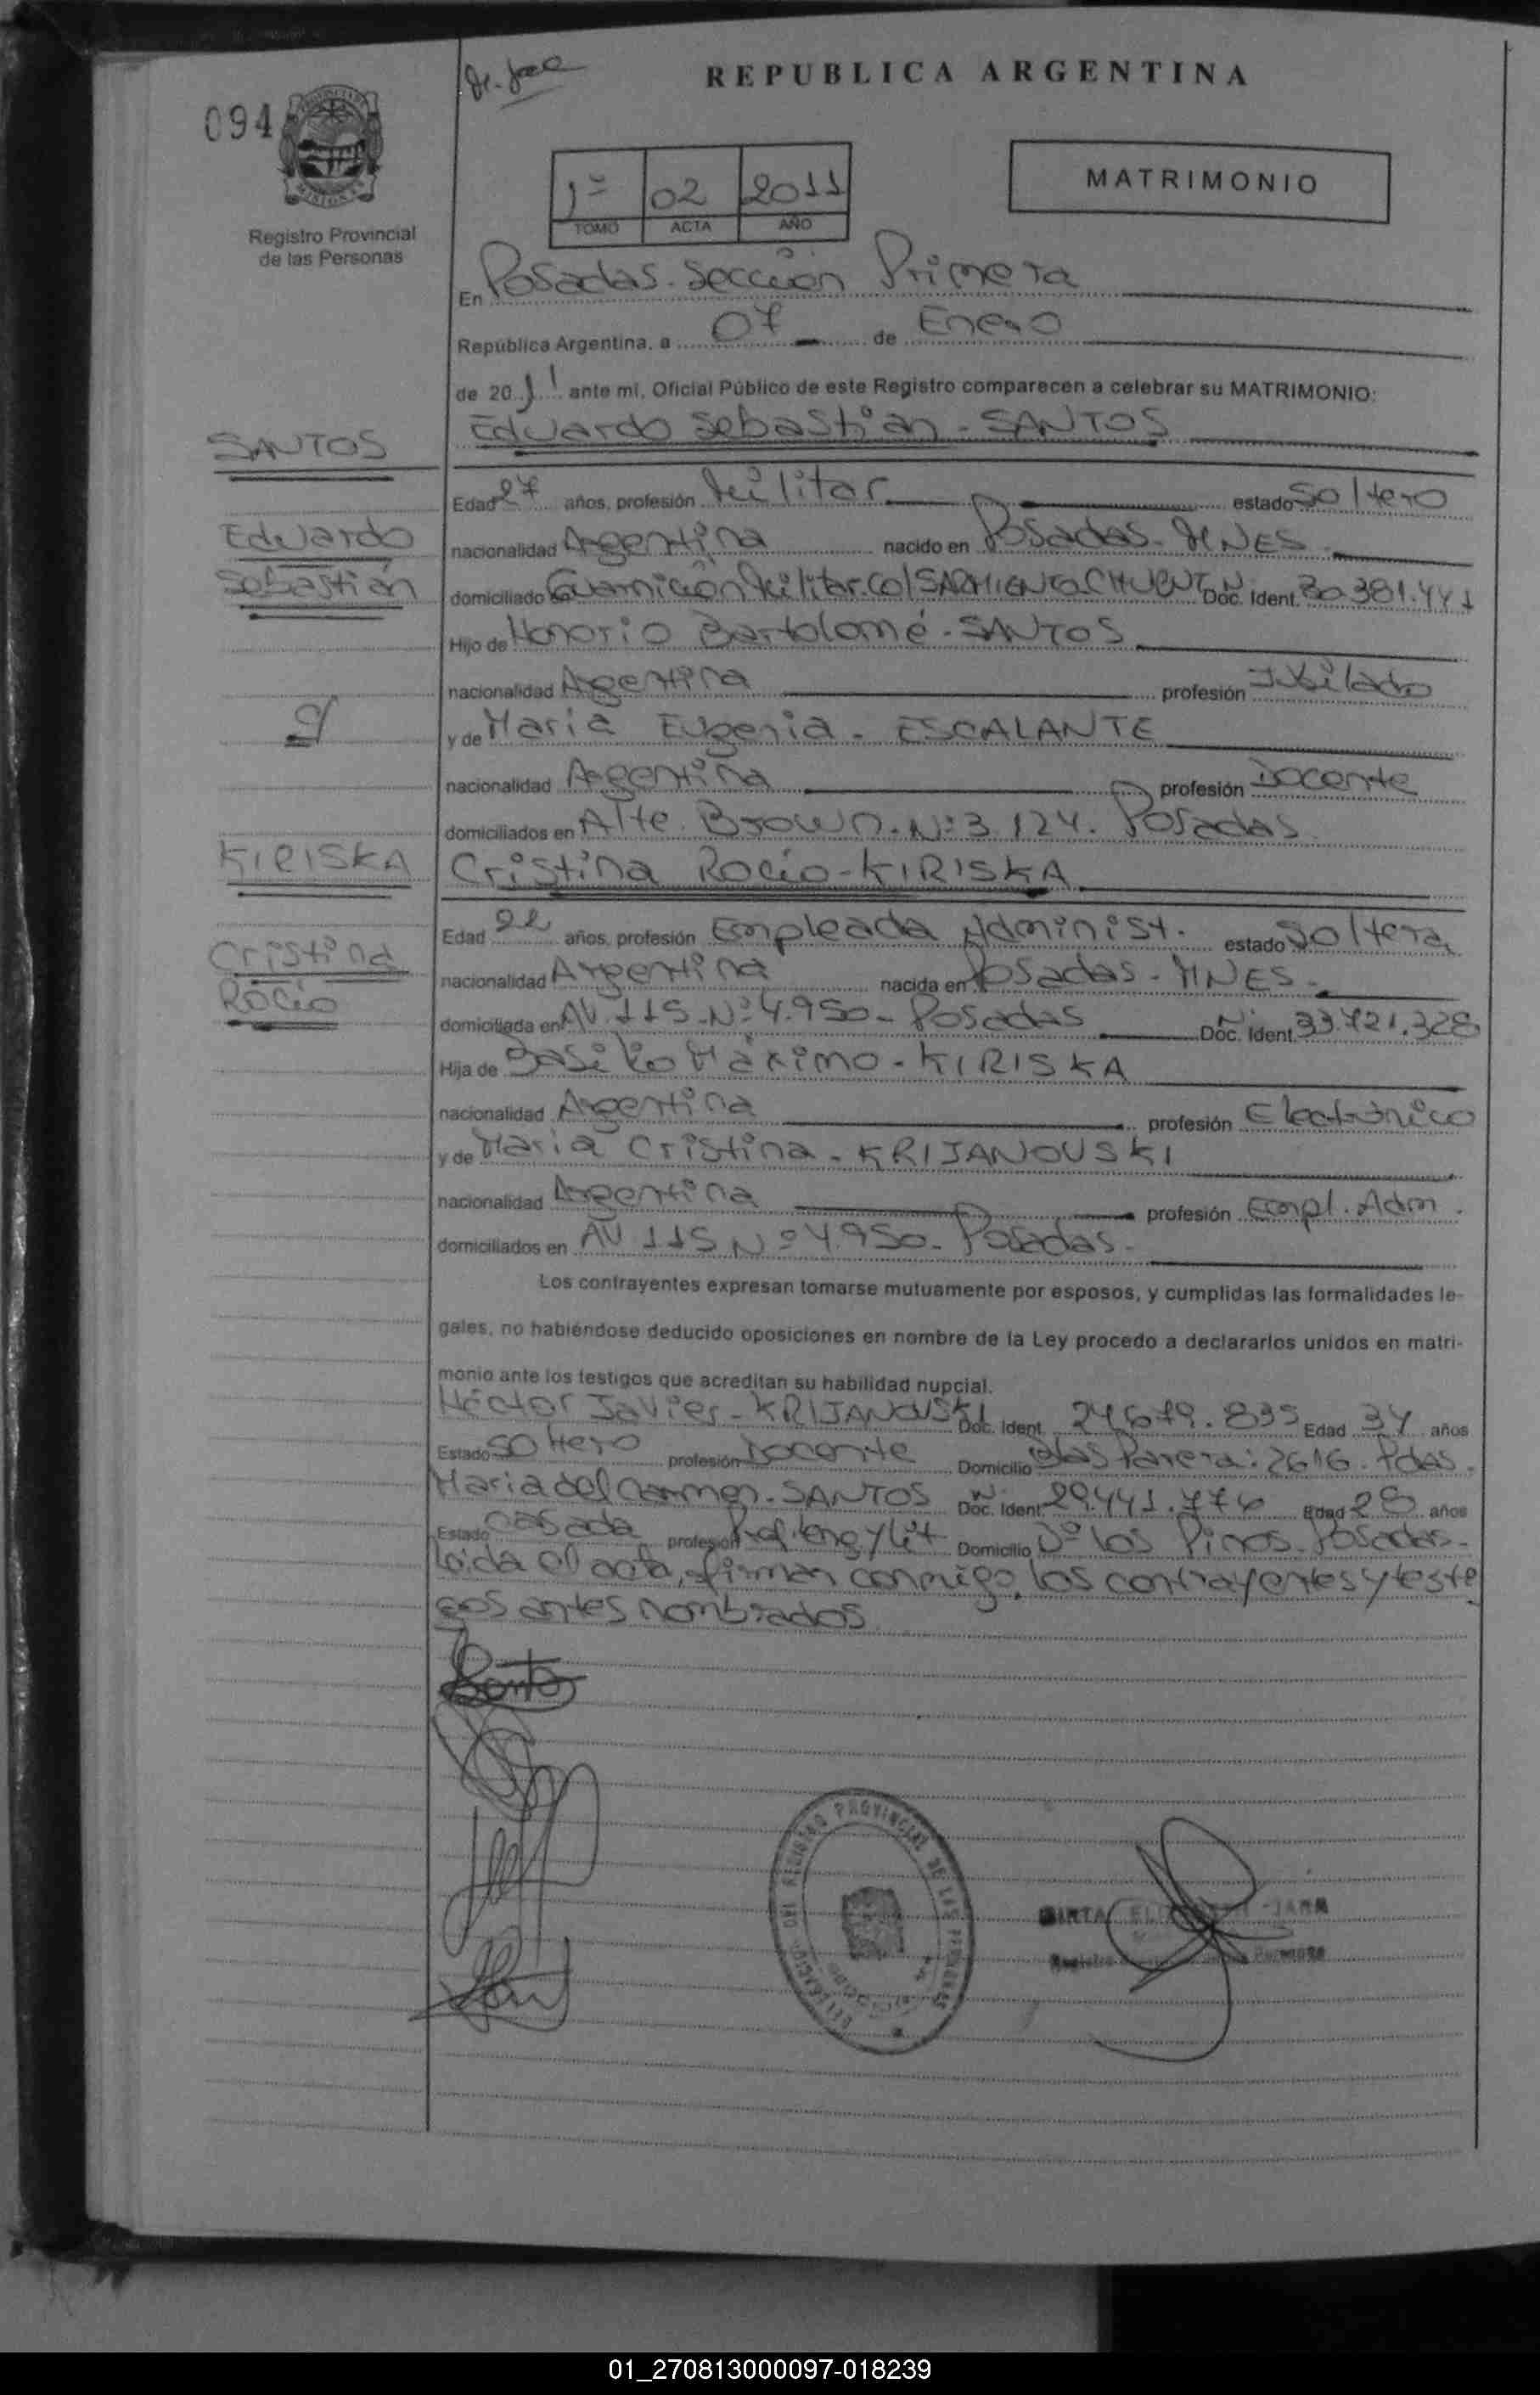 REPUBLICA ARGENTINA
094
Registro Provincial
de las Personas
1º 02 2011
TOMO ACTA AÑO
MATRIMONIO
En Posadas. Sección Primera
República Argentina, a 07 de Enero
de 2011 ante mi, Oficial Público de este Registro comparecen a celebrar su MATRIMONIO:
SANTOS
Eduardo Sebastián - SANTOS
Edad 27 años, profesión Militar estado Soltero
Eduardo
nacionalidad Argentina nacido en Posadas - MNES
Sebastián
domiciliado en Guarnición Militar. Col SARMIENTO CHUBUT Doc. Ident. 30.381.441
Hijo de Honorio Bartolomé - SANTOS
nacionalidad Argentina profesión Jubilado
y de María Eugenia - ESCALANTE
nacionalidad Argentina profesión Docente
domiciliados en Alte. Brown. Nº 3.124. Posadas
KIRISKA
Cristina Rocío - KIRISKA
Edad 22 años, profesión Empleada Administ. estado Soltera
Cristina
Rocío
nacionalidad Argentina nacida en Posadas - MNES
domiciliada en AV. 115 - Nº 4.950 - Posadas Doc. Ident. 33.721.328
Hija de Basilio Máximo - KIRISKA
nacionalidad Argentina profesión Electrónico
y de María Cristina - KRIJANOVSKI
nacionalidad Argentina profesión Empl. Adm.
domiciliados en AV 115 Nº 4.950 - Posadas -
Los contrayentes expresan tomarse mutuamente por esposos, y cumplidas las formalidades le-
gales, no habiéndose deducido oposiciones en nombre de la Ley procedo a declararlos unidos en matri-
monio ante los testigos que acreditan su habilidad nupcial.
Héctor Javier - KRIJANOVSKI Doc. Ident. 24.679.835 Edad 34 años
Estado Soltero profesión Docente Domicilio Blas Parera: 2616. Pdas.
María del Carmen - SANTOS Doc. Ident. 29.441.776 Edad 28 años
Estado Casada profesión Prof. leng y lit Domicilio Bº los Pinos - Posadas -
Leída el acta, firman conmigo, los contrayentes y testi
gos antes nombrados
Santos
REGISTRO PROVINCIAL DE LAS PERSONAS
DELEGACION
01_270813000097-018239